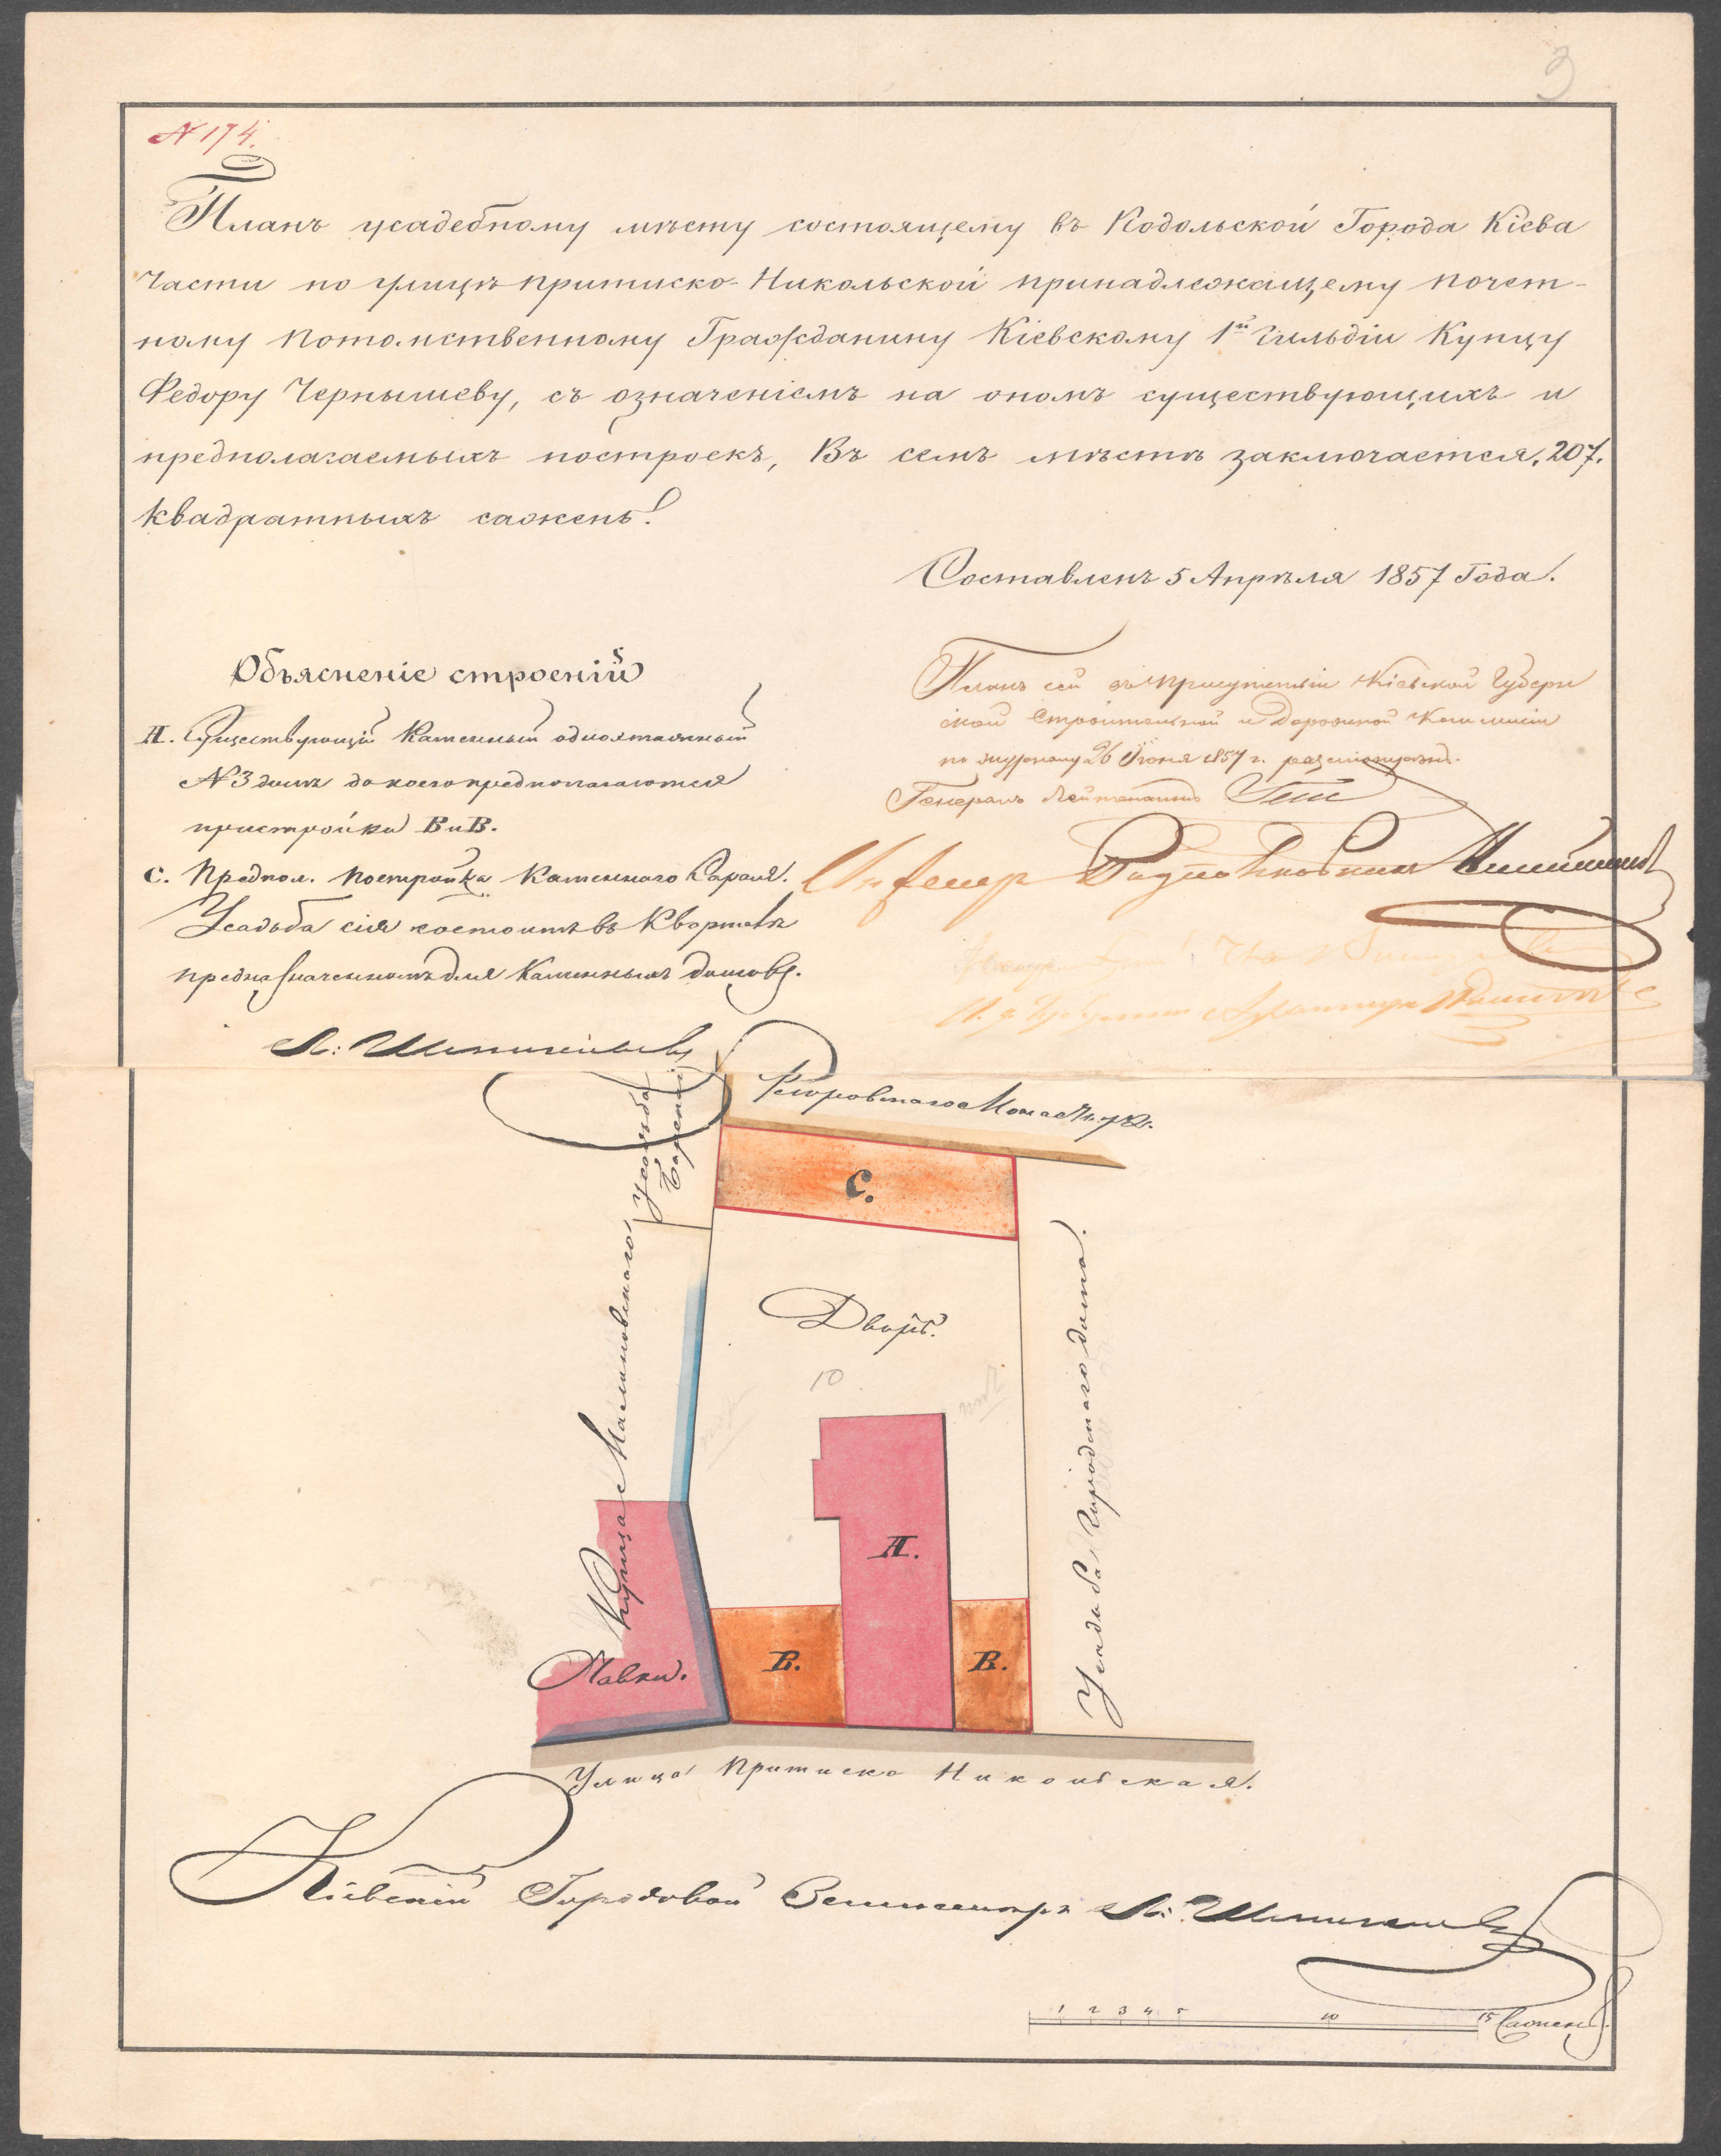 3
N 174.
Планъ усадебному мѣсту состоящему въ Подольской Города Кіева
Части по улицѣ Притиско-Никольской принадлежащему почет-
ному Потомственному Гражданину Кіевскому 1й Гильдіи Купцу
Федору Чернышеву, съ означеніемъ на ономъ существующихъ и
предполагаемыхъ построекъ, Въ семъ мѣстѣ заключается 207.
Квадратныхъ сажень.
Составленъ 5 Апрѣля 1857 Года.
Объясненіе строеній
А. Существующій Каменный одноэтажный
N 3 домъ до коего предполагаются
пристройки В и В.
С. Предпол. постройка Каменнаго Сарая.
Усадьба сія состоитъ въ Кварталѣ
предназначенномъ для Каменныхъ домовъ.
Планъ сей въ присутствіи Кіевской Губерн
ской Строительной и Дорожной Коммисіи
по журналу 26 Іюня 1857 г. разсмотрѣнъ.
Генералъ Лейтенантъ
Инженер Подполковникъ
Архитекторъ
Усадьба
Флоровскаго Монастыря.
С.
Дворъ.
10
Купца Малиновскаго
Усадьба Городскаго дома.
А.
В.
В.
Лавки.
Улица Притиско Никольская.
Кіевскій Городовой Землемѣръ
1 2 3 4 5 10 15 Сажень